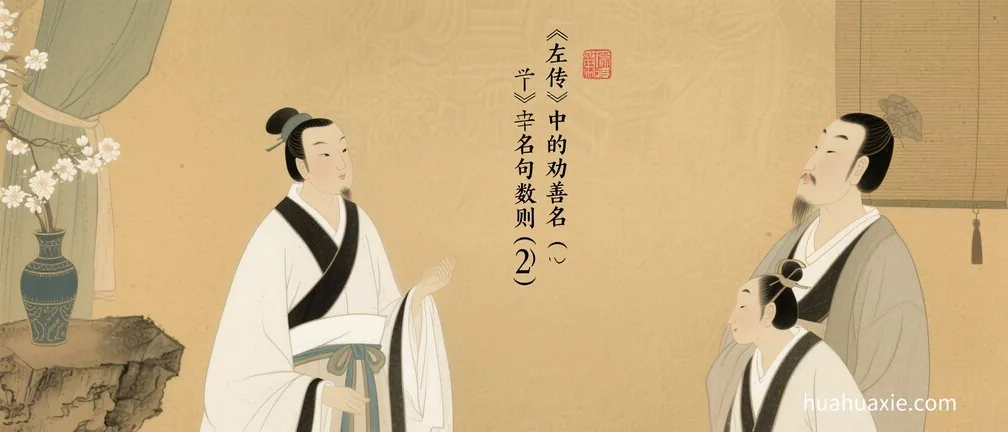 《左传》中的劝善名
名句数则(2)
huahuaxie.com